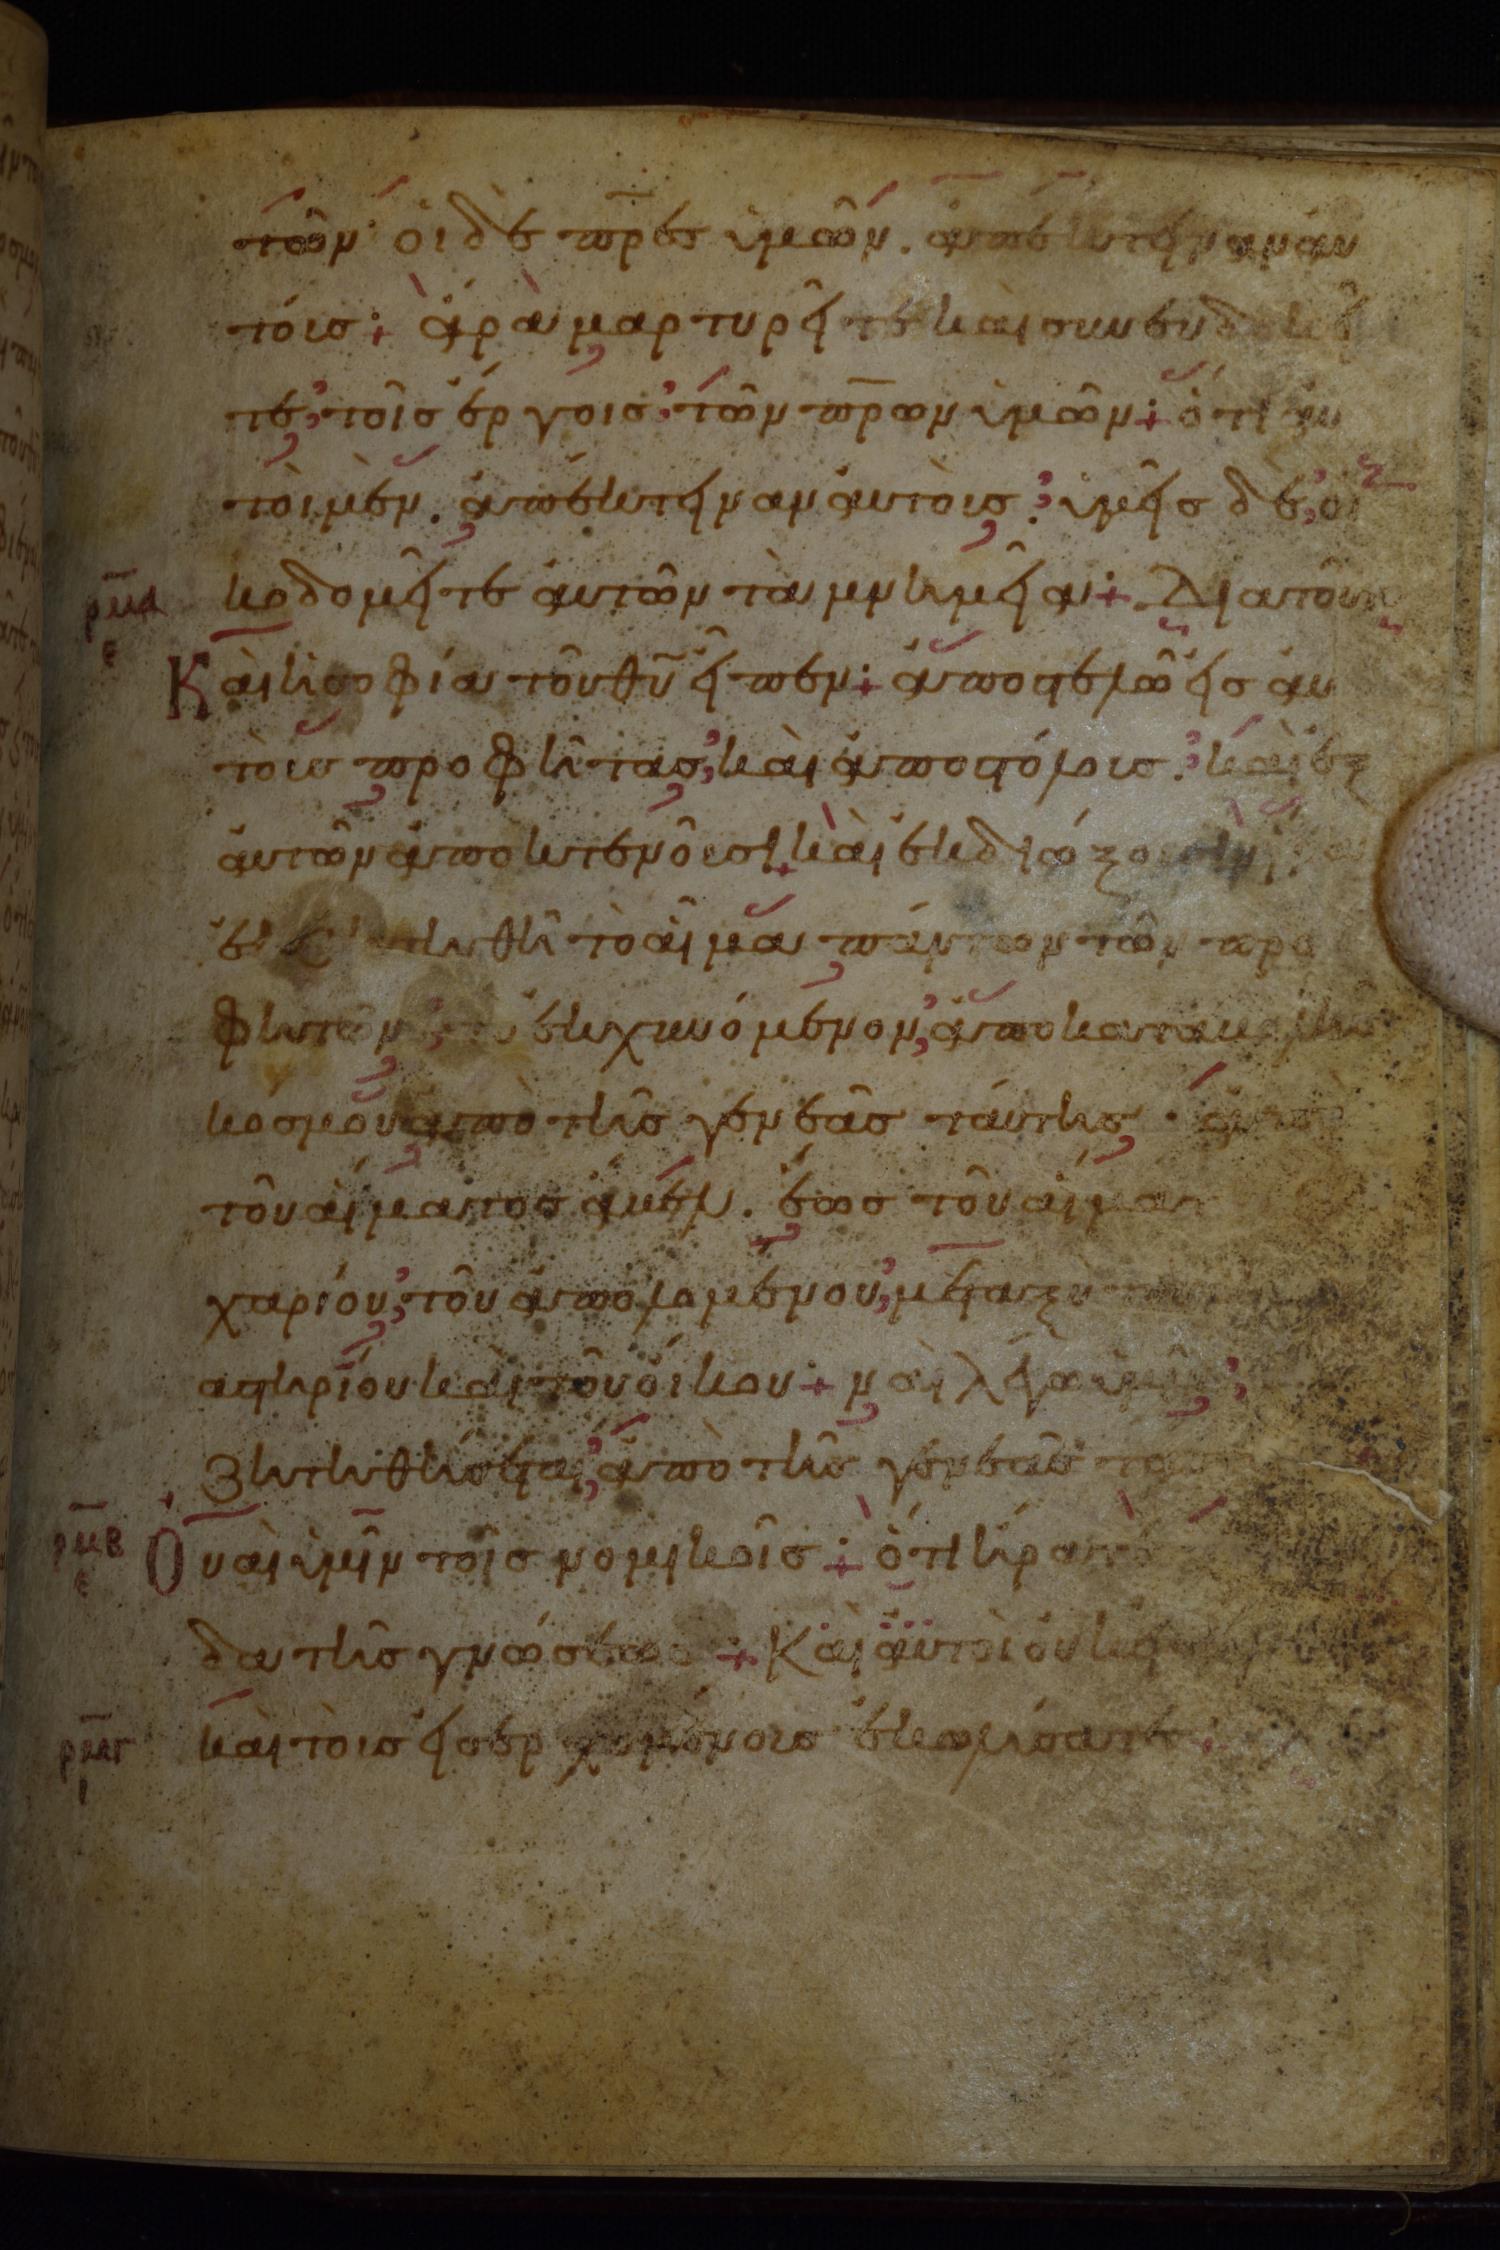 τῶν· οἱ δὲ πρ̅ες ὑμῶν. ἀπέκτειναν αυ
τοίς: ἄρα μαρτυρεῖτε καὶ συνευδοκεῖ
τε, τοῖς ἔργοις, τῶν πρ̅ων ὑμῶν: ὅτι αυ
τοὶ μὲν. ἀπέκτειναν αὐτοὺς. ὑμεῖς δὲ, οἰ
ρμα κοδομεῖτε αὐτῶν τὰ μνημεῖα: Διατοῦτο
ε Καὶ ἡ σοφία τοῦ θυ̅ εἶπεν: ἀποστελῶ εἰς αυ
τοὺς προφήτας, καὶ ἀποστόλους. καὶ ἐξ
αὐτῶν ἀποκτενοῦσι, καὶ ἐκδιώξουσιν:
ἐκζητηθῆ τὸ αἷμα πάντων τῶν προ
φητῶν, τὸ ἐκχυνόμενον, ἀπὸ καταβολῆς
κόσμου ἀπὸ τῆς γενεᾶς ταύτης· ἀπὸ
τοῦ αἵματος ἄβελ. ἕως τοῦ αἵματ
χαρίου, τοῦ ἀπολομένου, μεταξὺ τοῦ
αστηρίου καὶ τοῦ οἴκου: ναὶ λέγω ὑμῖν,
ζητηθήσεται, ἀπὸ τῆς γενεᾶς ταύ
ρμβ ε Οὐαὶ ὑμῖν τοῖς νομικοῖς: ὅτι ἤρατε
δα τῆς γνώσεως: Καὶ αὐτοὶ οὐκ
ρμγ καὶ τοὺς εἰσερχομένους ἐκωλύσατε: